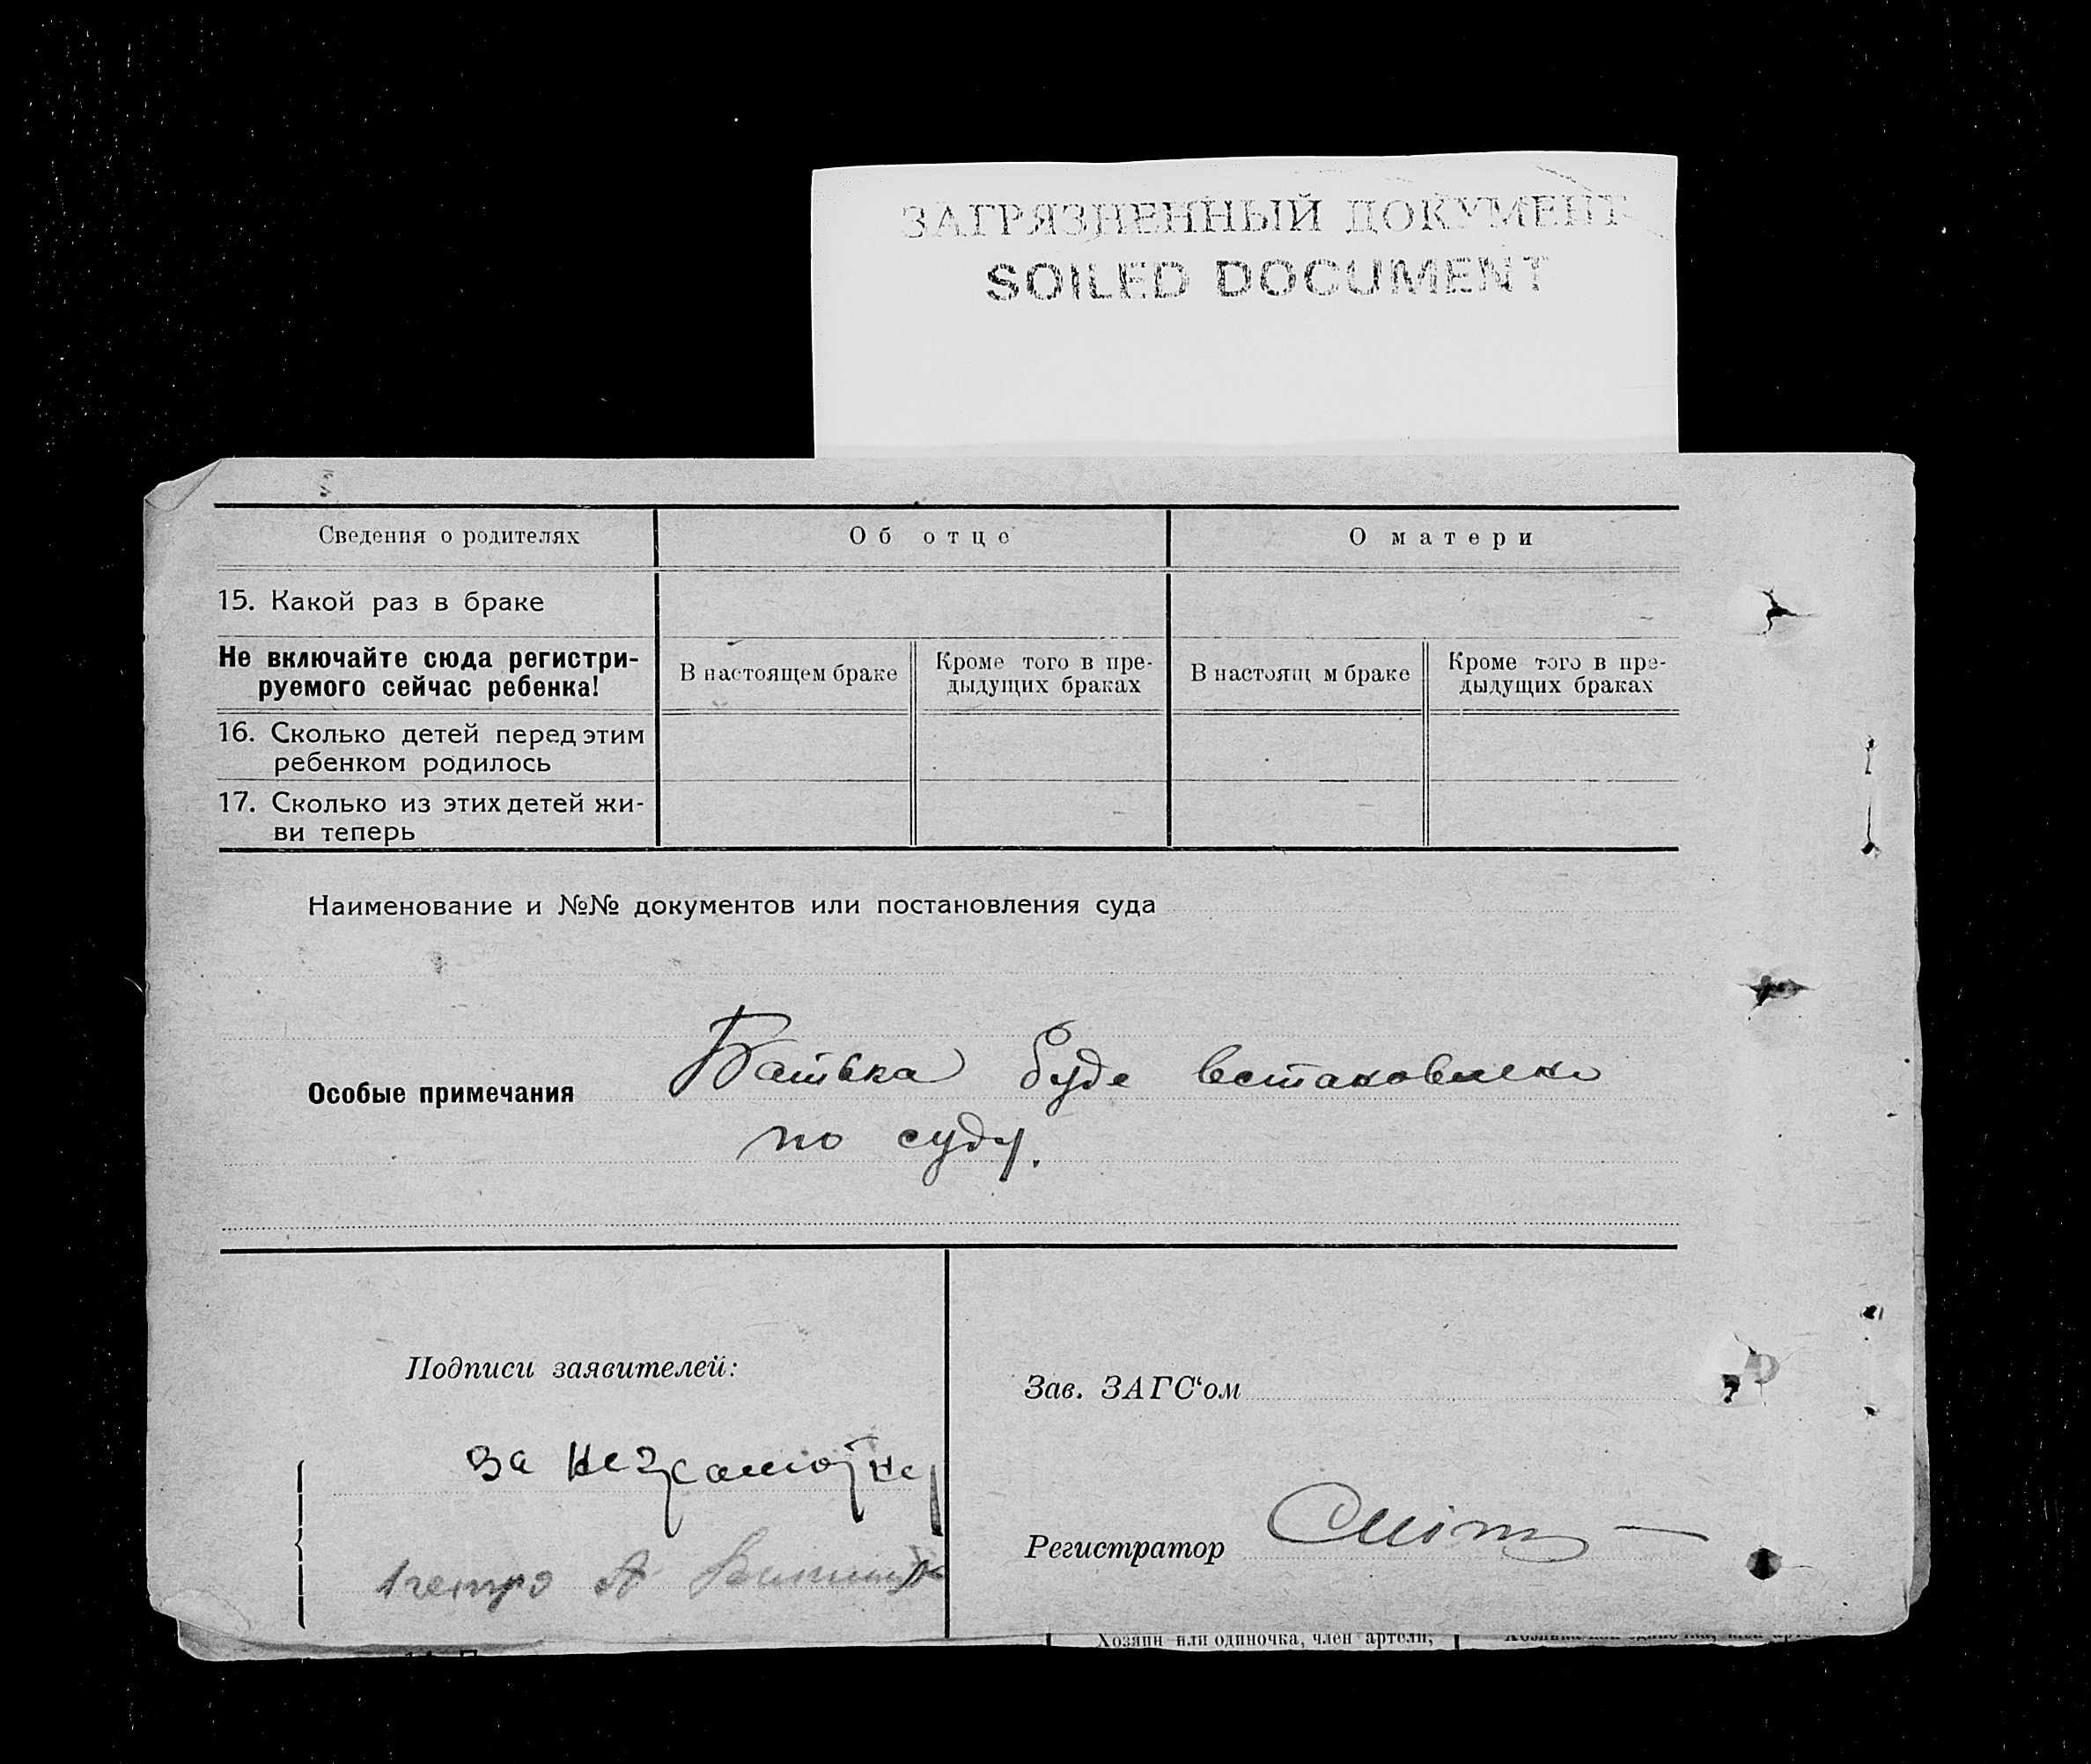 ЗАГРЯЗНЕННЫЙ ДОКУМЕНТ
SOILED DOCUMENT
Сведения о родителях
Об отце
О матери
15. Какой раз в браке
Не включайте сюда регистри-
руемого сейчас ребенка!
В настоящем браке
Кроме того в пре-
дыдущих браках
В настоящ м браке
Кроме того в пре-
дыдущих браках
16. Сколько детей перед этим
ребенком родилось
17. Сколько из этих детей жи-
ви теперь
Наименование и №№ документов или постановления суда
Особые примечания Батька буде встановлено
по суду.
Подписи заявителей:
За
Зав. ЗАГС'ом
Регистратор
Хозяин или одиночка, член артели,